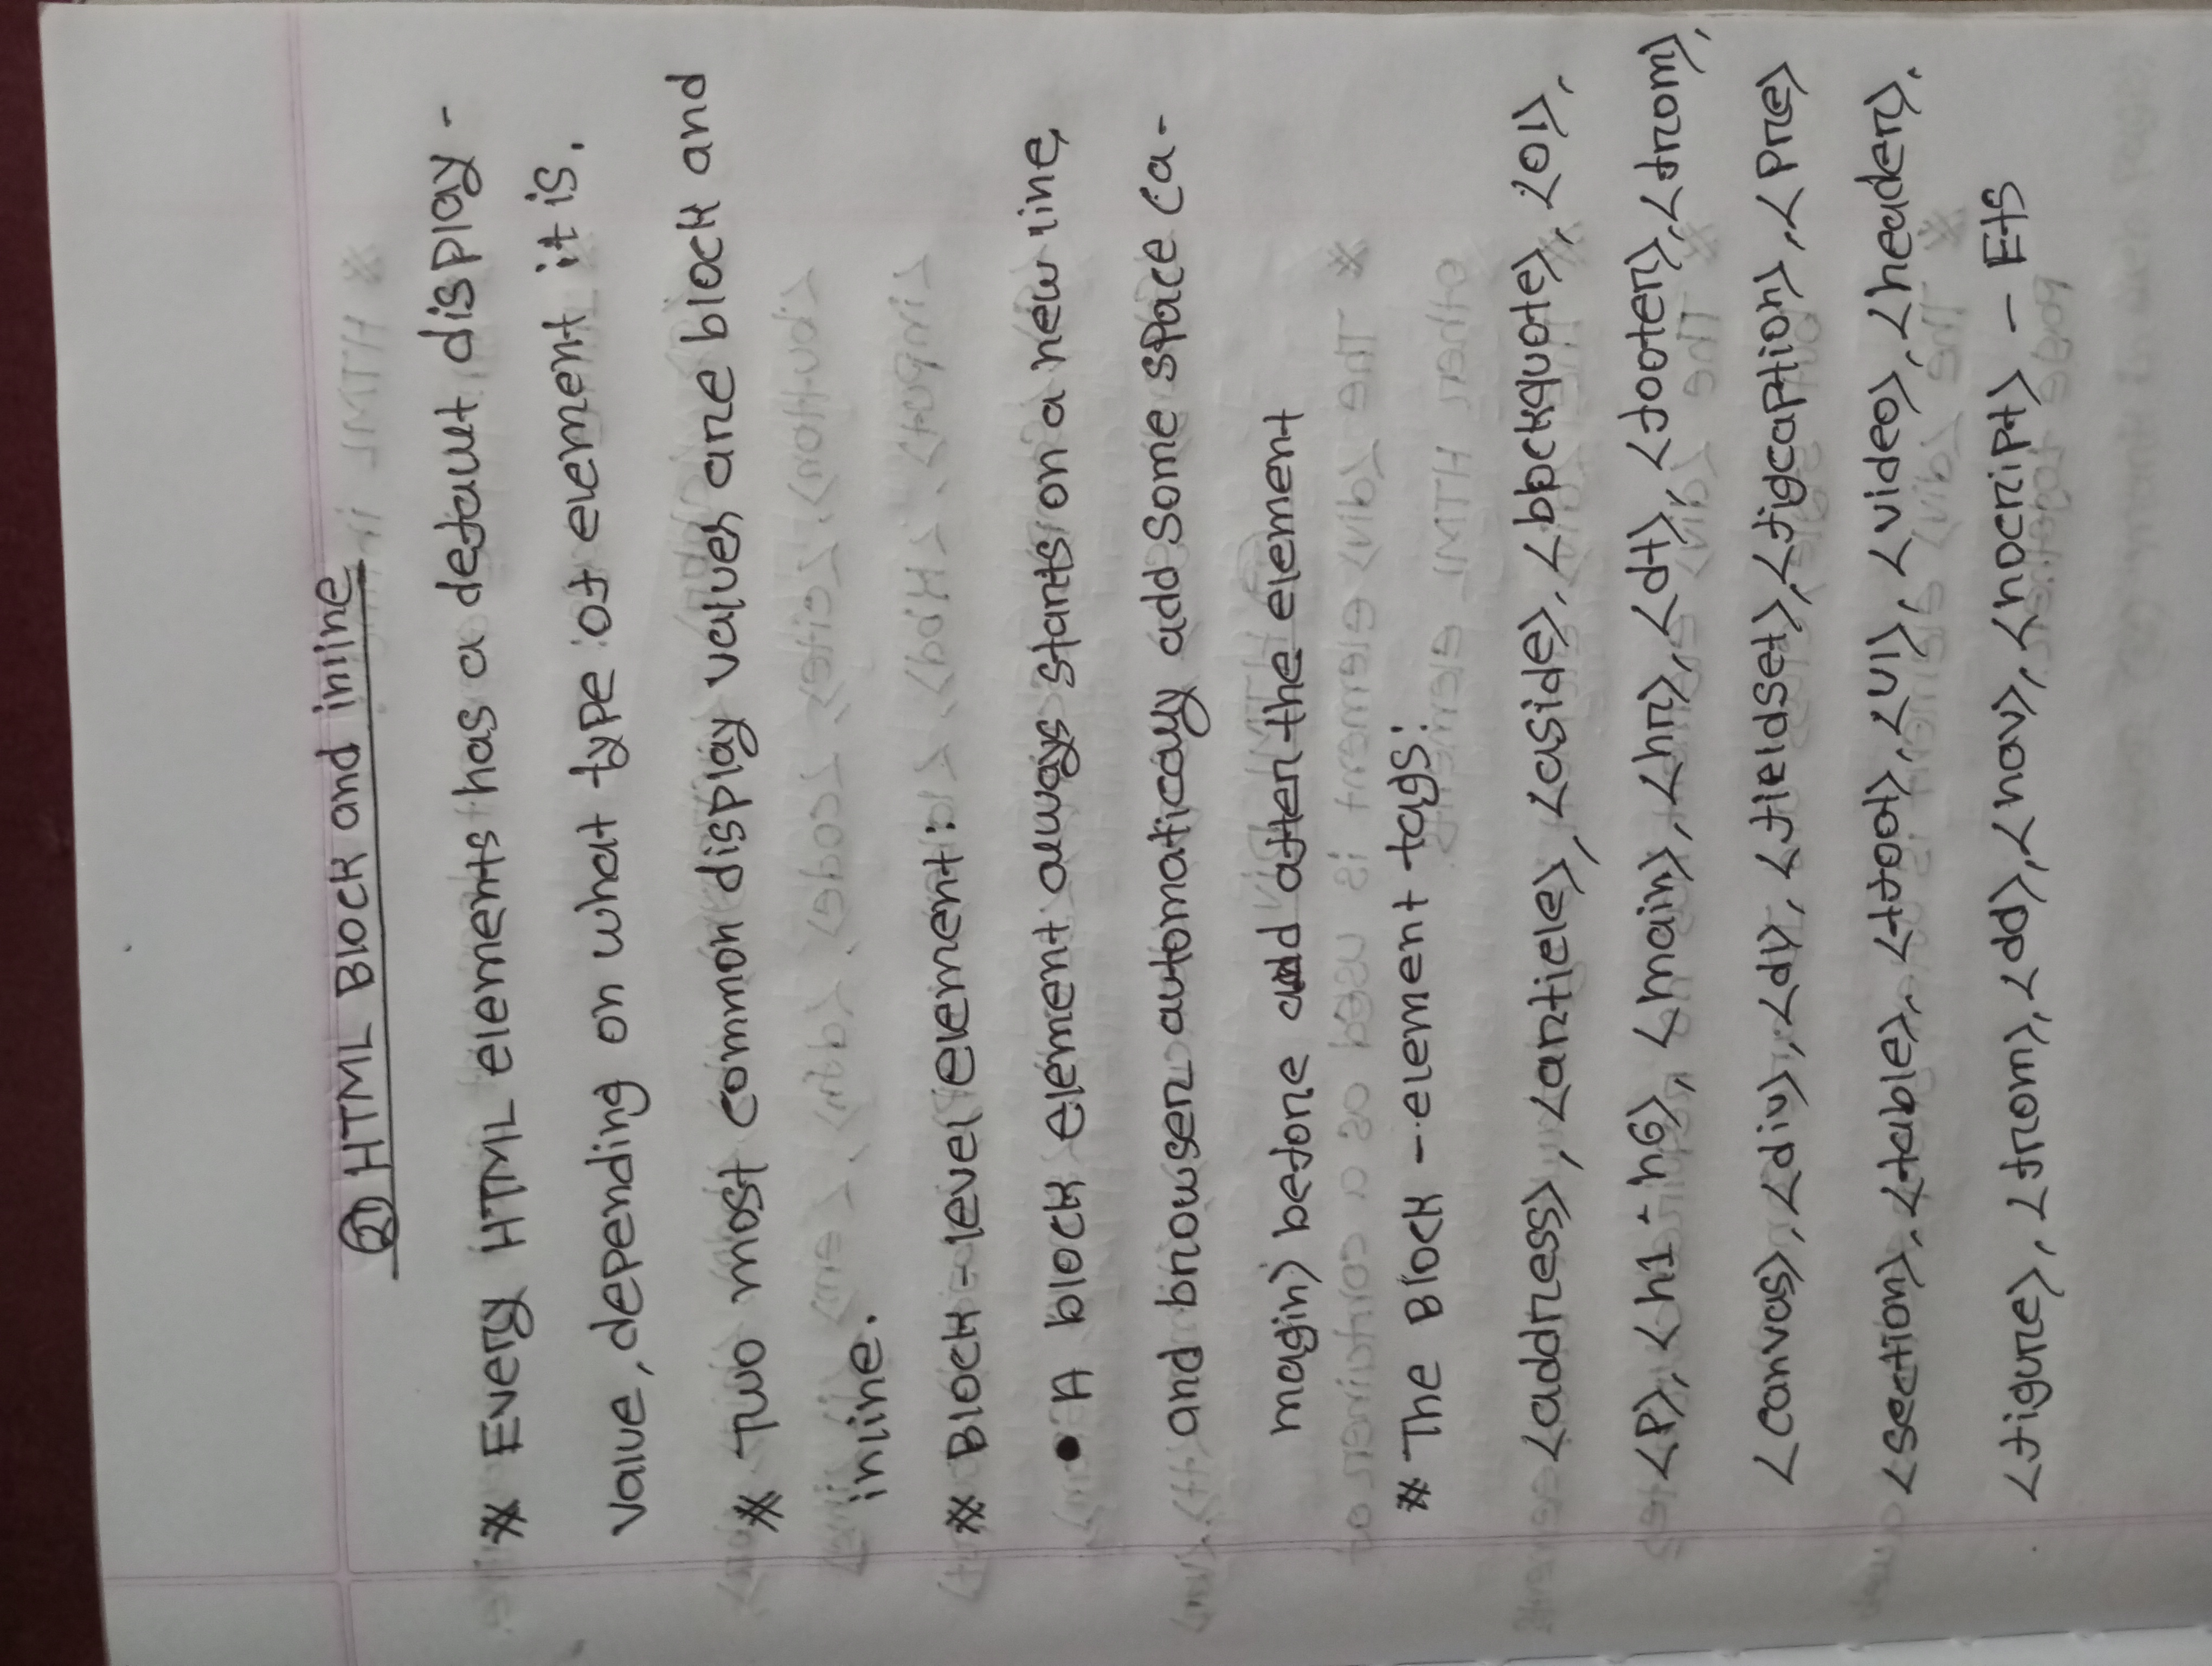 21 HTML Block and inline
* Every HTML elements has a default display -
value, depending on what type of element it is.
* Two most common display values are block and
inline.
* Block - level element:
• A block element always starts on a new line,
and browser automatically add some space (a -
magin) before and after the element
* The Block - element tags:
<address>, <article>, <aside>, <blockquote>, <ol>,
<P>, <h1 - h6>, <main>, <hr>, <dt>, <footer>, <from>,
<canvas>, <div>, <dl>, <fieldset>, <figcaption>, <Pre>
<section>, <table>, <tfoot>, <ul>, <video>, <header>,
<figure>, <from>, <dd>, <nav>, <nocript> - Ets